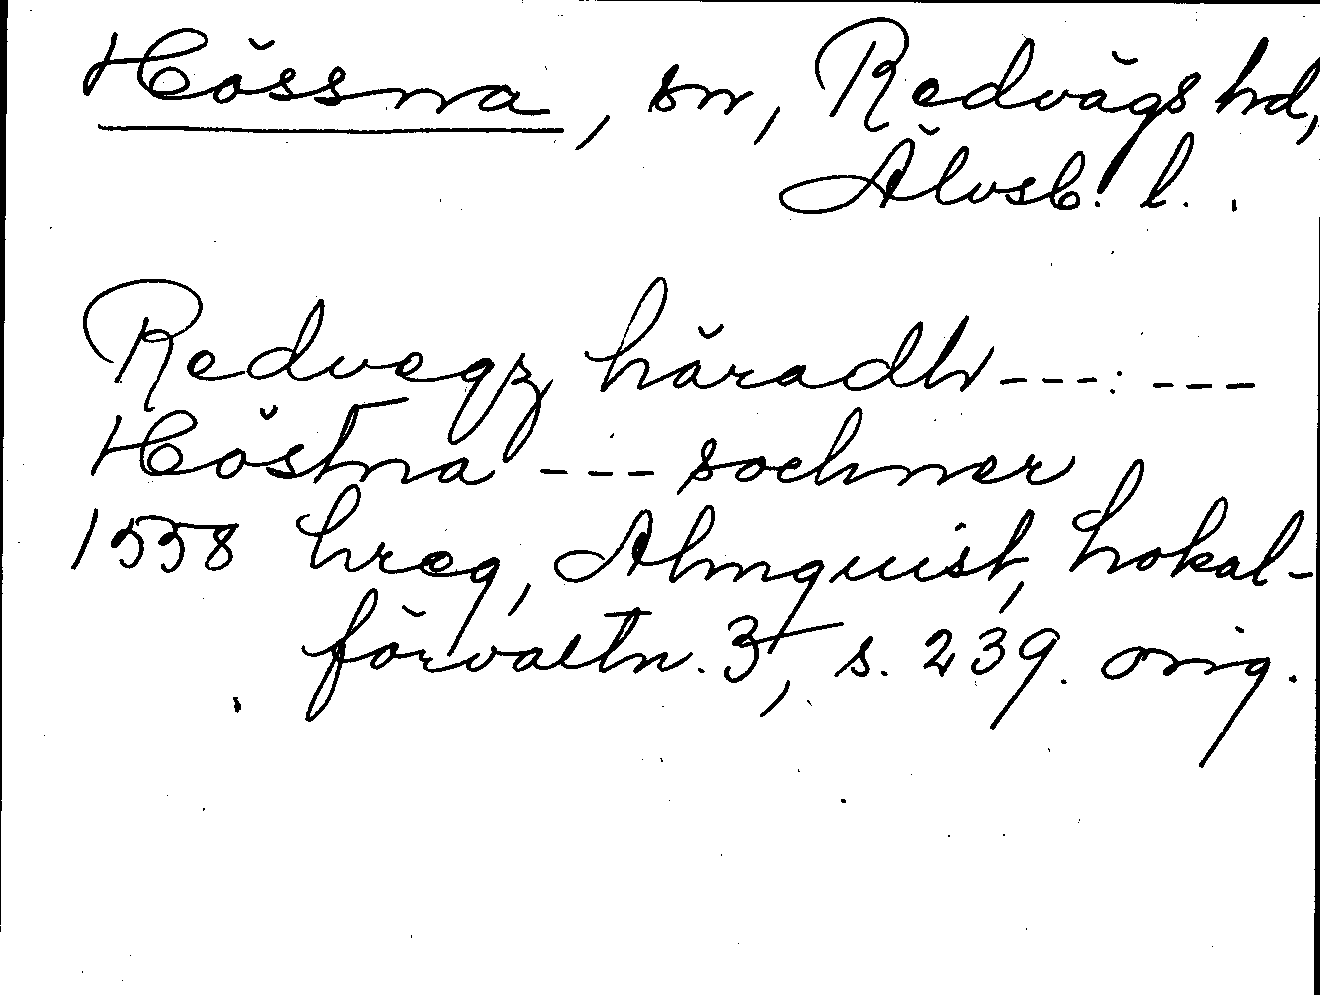 Hössna, sn, Redvägs hd,
Älvsb. l.
Redvegz häradh ---:---
Höstna --- sochner
1558 hreg, Almquist, Lokal-
förvaltn. 3, s. 239. orig.